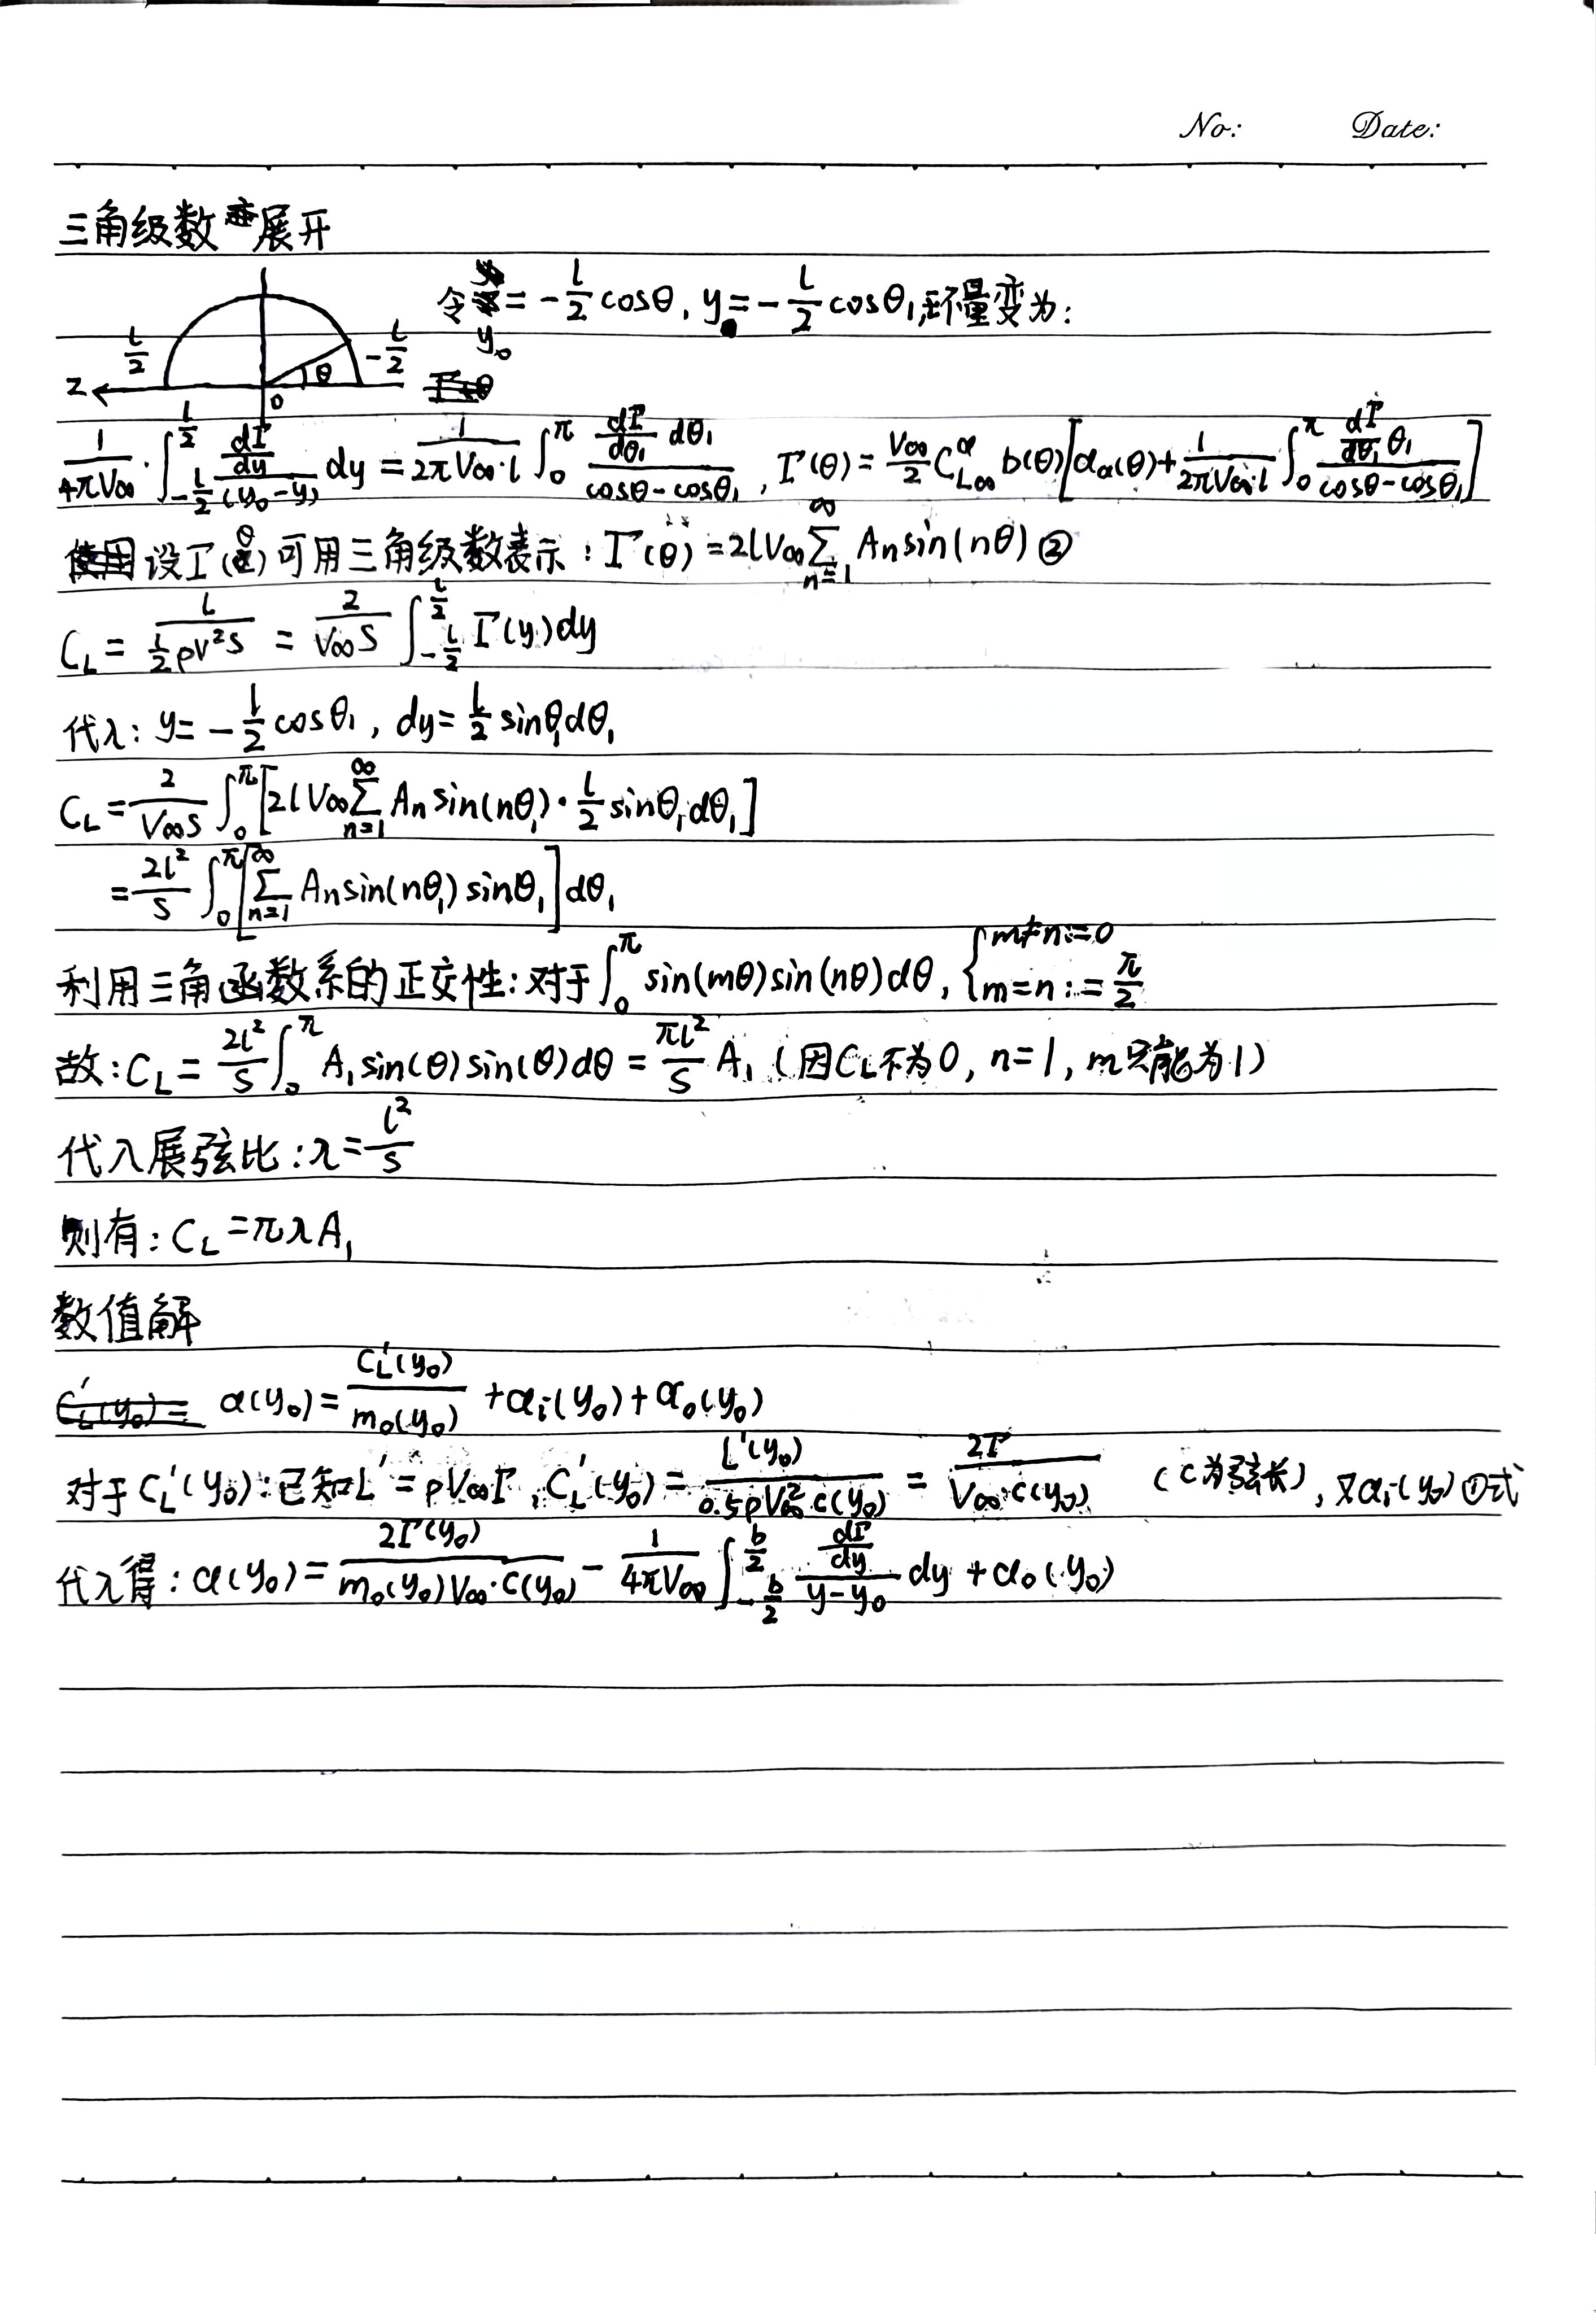 No: Date:
三角级数展开
令 y₀ = -l/2 cosθ, y = -l/2 cosθ₁, 环量变为:
l/2 -l/2 θ z 0
1/(4πV∞) · ∫_{-l/2}^{l/2} (dΓ/dy)/(y₀-y) dy = 1/(2πV∞·l) ∫_0^π (dΓ/dθ₁ dθ₁)/(cosθ-cosθ₁), Γ(θ) = V∞/2 C_{L∞}^α b(θ)[α_a(θ) + 1/(2πV∞·l) ∫_0^π (dΓ/dθ₁ θ₁)/(cosθ-cosθ₁)]
设Γ(θ)可用三角级数表示: Γ(θ) = 2lV∞ ∑_{n=1}^∞ An sin(nθ) ②
C_L = L/(1/2 ρV²S) = 2/(V∞S) ∫_{-l/2}^{l/2} Γ(y)dy
代入: y = -l/2 cosθ₁, dy = l/2 sinθ₁dθ₁
C_L = 2/(V∞S) ∫_0^π [2lV∞ ∑_{n=1}^∞ An sin(nθ₁) · l/2 sinθ₁dθ₁]
= 2l²/S ∫_0^π [∑_{n=1}^∞ An sin(nθ₁) sinθ₁] dθ₁
利用三角函数系的正交性: 对于 ∫_0^π sin(mθ)sin(nθ)dθ, { m≠n: =0
m=n: = π/2
故: C_L = 2l²/S ∫_0^π A₁ sin(θ) sin(θ)dθ = πl²/S A₁ (因C_L不为0, n=1, m只能为1)
代入展弦比: λ = l²/S
则有: C_L = πλA₁
数值解
α(y₀) = C_L'(y₀)/m₀(y₀) + α_i(y₀) + α₀(y₀)
对于C_L'(y₀): 已知L' = ρV∞Γ, C_L'(y₀) = L'(y₀)/(0.5ρV∞²·c(y₀)) = 2Γ/(V∞·c(y₀)) (c为弦长), 又α_i(y₀)①式
代入得: α(y₀) = 2Γ(y₀)/(m₀(y₀)V∞·c(y₀)) - 1/(4πV∞) ∫_{-b/2}^{b/2} (dΓ/dy)/(y-y₀) dy + α₀(y₀)